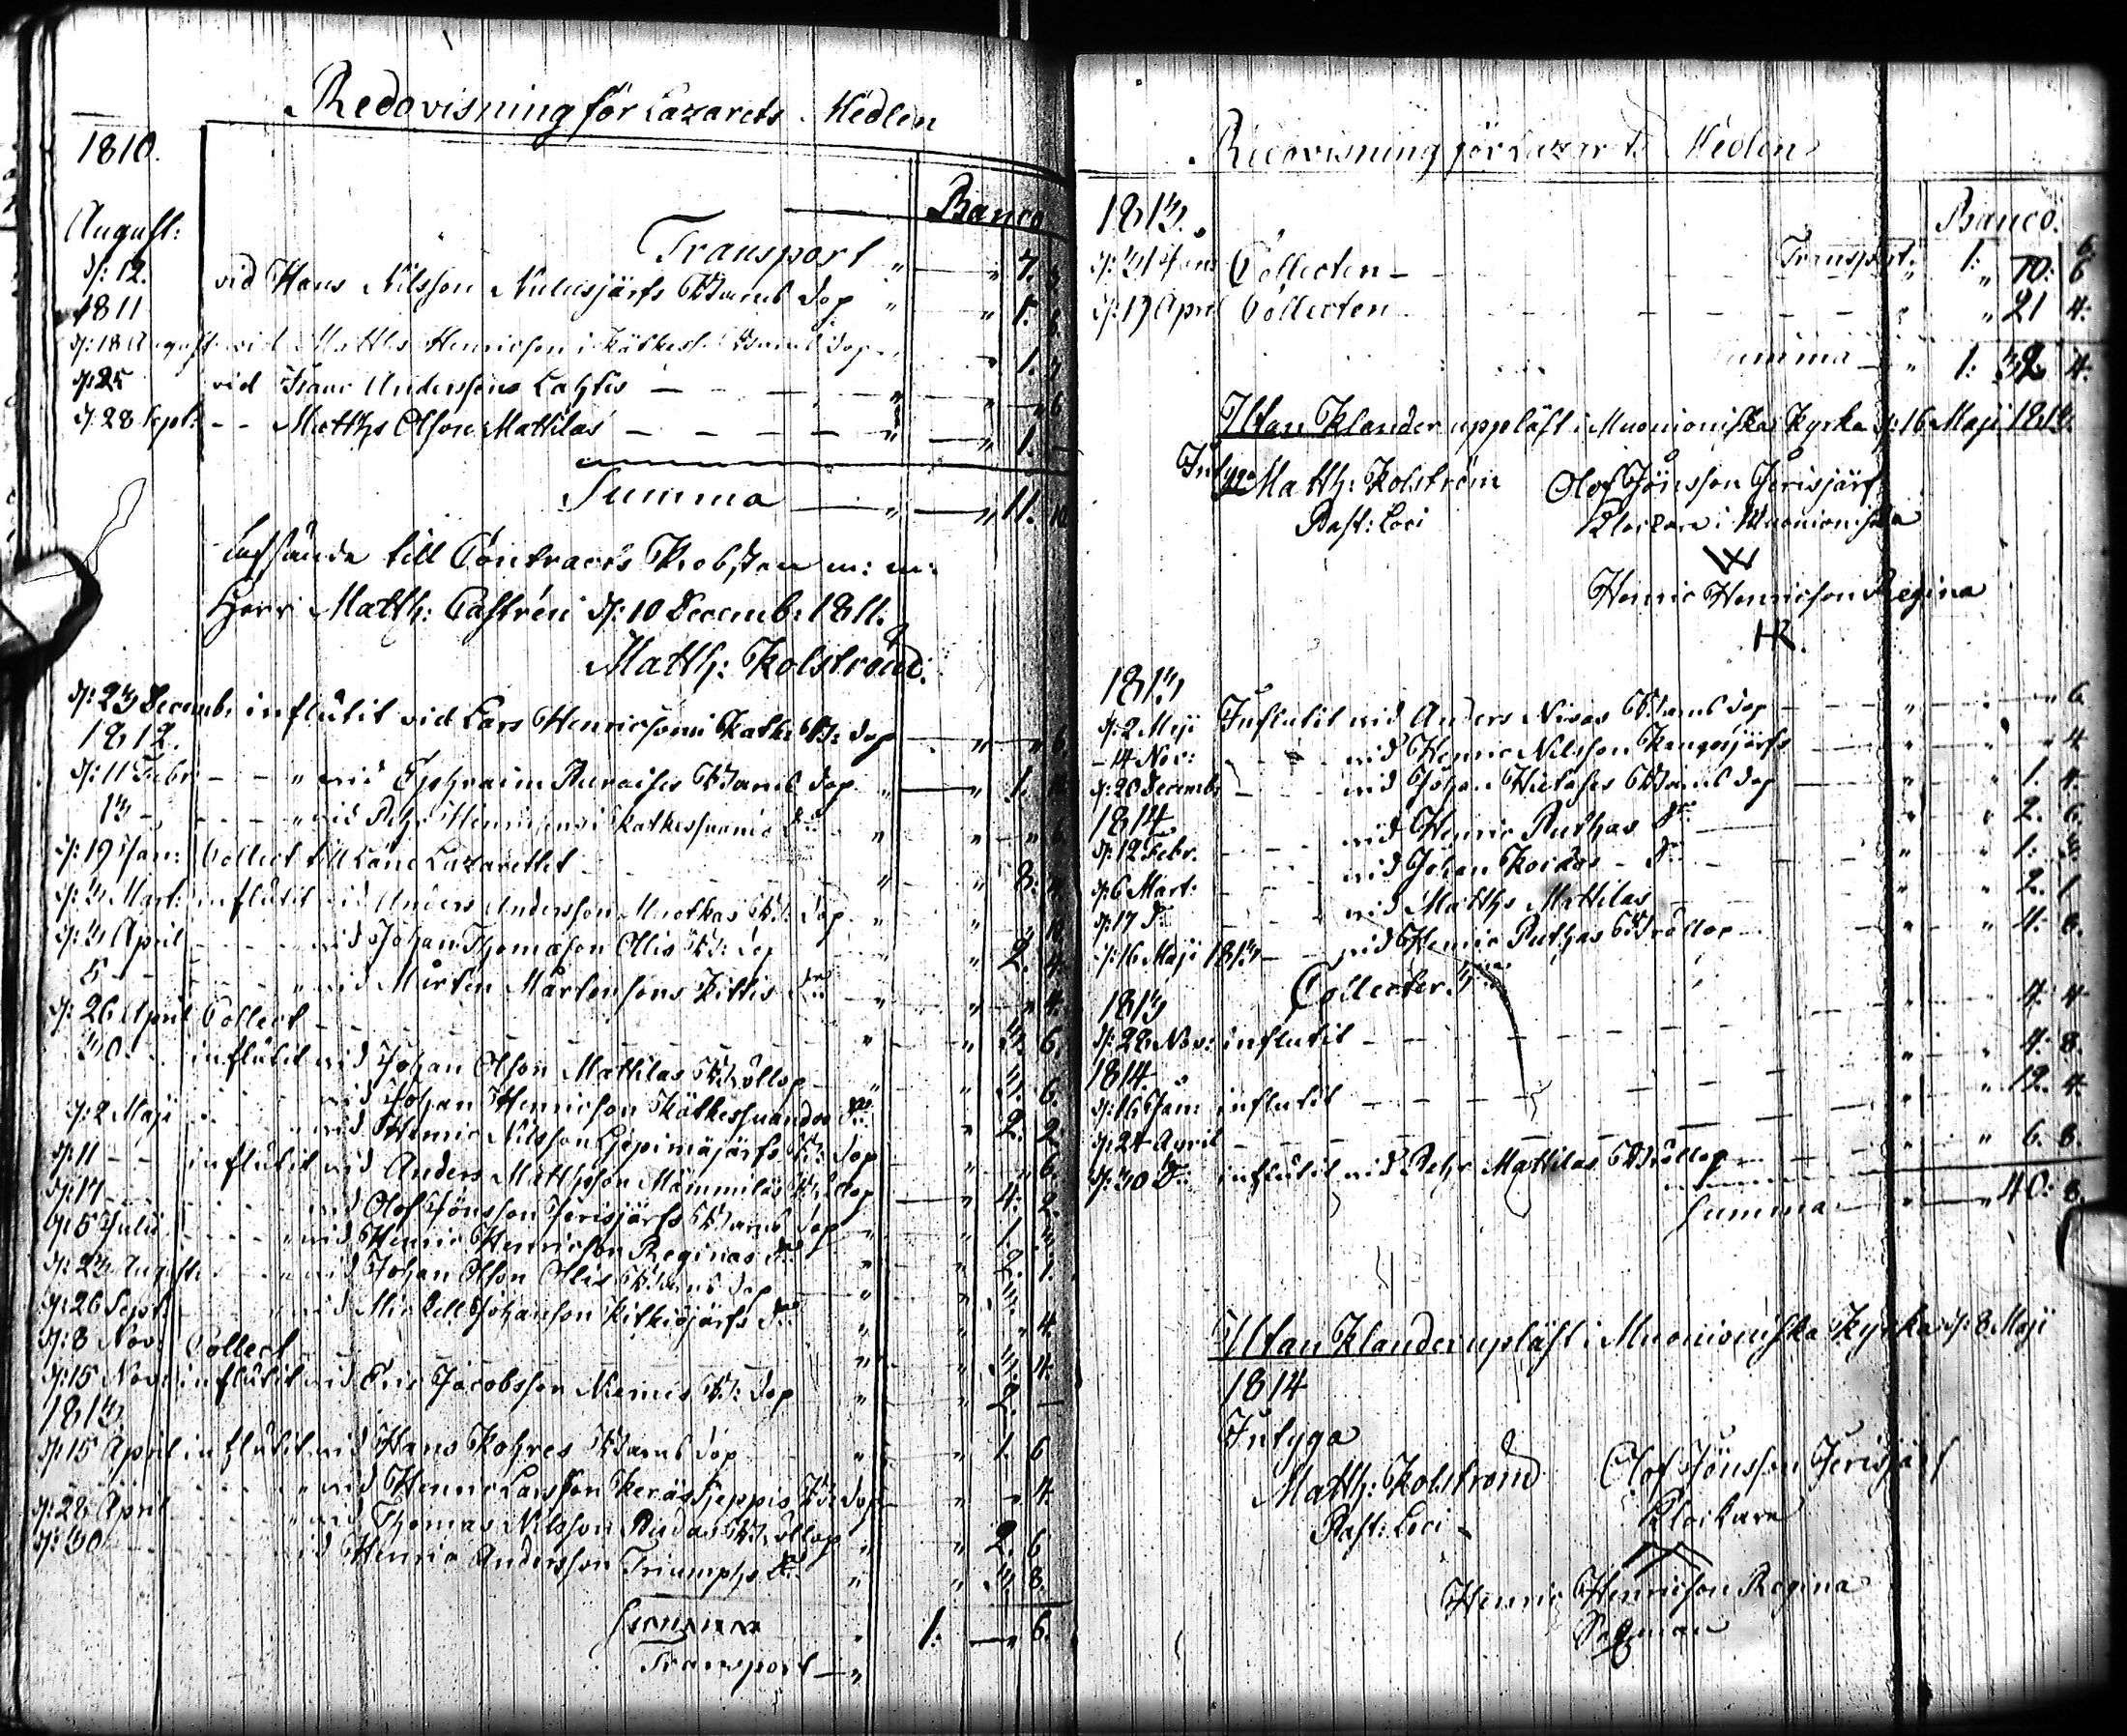 Redovisning för Lazarets Medlen
1810.
Banco
August: Transport " — " 7.
d: 12. vid Hans Nilsson Nulusjärfs Barns dop " — " 1. 8.
1811
d: 18 August vid Matths Henricsson i Kätkess. Barns dop — " 1.
d: 25 vid Frans Anderssons Lahtis — — — — " — " 6
d: 28 Sept: - - Matths Olsson Mattilas — — — — " — " 1. —
Summa — " — " 11. 10
till Contracts Probsten m: m:
Herr Matth: Castrén d: 10 Decemb: 1811.
Matth: Kolström:
d: 23 Decemb: influtit vid Lars Henricsson Kätke B: dop — " — " 6.
1812.
d: 11 Febr: - - " vid Ephraim Auraises Barns dop " — " 1. 10
13 - - - - " vid Pehr Henricsson i Kätkesuando do " " 6
d: 19 Jan: Collect till Läns Lazarettet — " 8. 4
d: 3 Mart: influtit vid Anders Andersson Muotkas B: dop " " 10
d: 3 April - - - vid Johan Thomasson Ollis B: dop " 2. 4.
5 - - - - " vid Mårten Mårtensons Kittis do " — " 4.
d: 26 April Collect — " — " 3. 6.
30. - - influtit vid Johan Olsson Mattilas Bröllop " " 3. 6.
vid Johan Henricsson Kätkessuandos do " 2. 2.
d: 2 Maji - - " vid Henric Nilsson Liepimäjärfs B: dop " " 6.
d: 11 - - influtit vid Anders Matthsson Mämmiläs B: dop — " 4. 2.
d: 17 - - - - vid Olof Jönsson Jerisjärfs Barns dop " " 1. 3.
d: 5 Julii - - - " vid Henric Henricsson Reginas do " " 2. 1.
d: 23 Augusti - - " vid Johan Olsson Ollis Barns dop " " 3.
d: 26 Sept: - - - " vid Mickell Johansson Kitkiöjärfs do " " 4.
d: 8 Nov: Collect — " " 3. 4.
d: 15 Nov: influtit vid Eric Jacobsson Niemis B: dop " " 2. —
1813.
d: 15 April influtit vid Hans Kohres Barns dop " " 1. 6
" vid Henric Larsson Keräs Sieppis B: dop " " 4.
d: 28 April - - - " vid Thomas Nilsson Bröllop " " 2. 6
d: 30 - - - - vid Henric Andersson Triumphs do " " 3. 8.
Summa
Transport — " 1: — " 6.
Redovisning för Lazarets Medlen
1813. Banco.
Transport: 1: " 6
d: 31 Jan: Collecten — " 10: 6
d: 19 April Collecten — " 21 4:
Summa — " 1: 32. 4.
Utan Klander uppläst i Muonioniska Kyrka d: 16 Maji 1813.
Intyga
Matth: Kolström Olof Jönsson Jerisjärf
Past: Loci Klockare i Muonioniska
Henric Henricsson Regina
HR.
1813
d: 2 Maji Influtit vid Anders Nivas Barns dop — " — " 6.
- 14 Nov: - - vid Henric Nilsson Kangosjärfs — " " 4
d: 26 Decemb: - - vid Johan Hietases Barns dop " " 1. 4.
1814 - - vid Henric Ruthas do — " " 2. 6.
d: 12 Febr. - - - vid Johan Koikas - do — " " 1: 3.
d: 6 Mart: - - - vid Matths Mattilas — " " 2. 1
d: 17 do - - - vid Henric Ruthas Bröllop — " " 4: 8.
d: 16 Maji 1813 —
Collecter
1813
d: 28 Nov: influtit — " " 4. 4
1814. " " 4: 8.
d: 16 Jan: influtit — " " 12. 4.
d: 24 April — " " 6. 8.
d: 30 do influtit vid Pehr Mattilas Bröllop
Summa — " — " 40: 8.
Utan Klander upläst i Muonioniska Kyrka d: 8 Maji
1814
Intyga
Matth: Kolström Olof Jönsson Jerisjärf
Past: Loci Klockare
Henric Henricsson Regina
Sexman